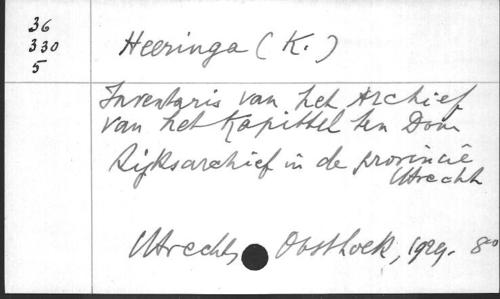 36
330
5
Heeringa (K.)
Inventaris van het Archief
van het Kapittel ten Dom
Rijksarchief in de provincië
Utrecht
Utrecht, Oosthoek, 1929. 8°